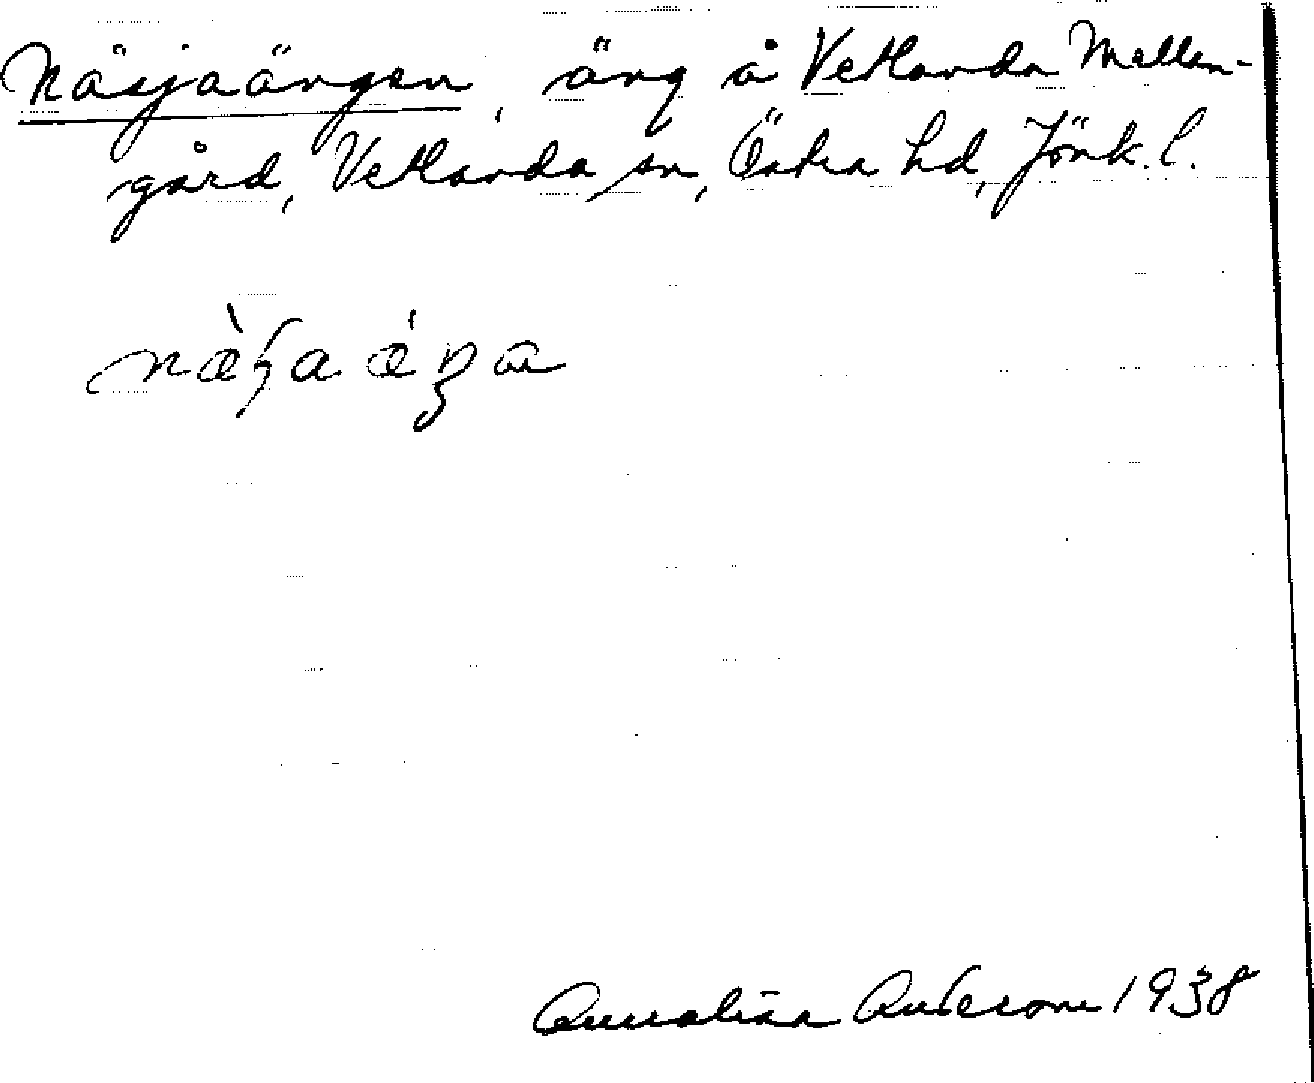 Näsjaängen, äng å Vetlanda Mellan-
gård, Vetlanda sn, Östra hd, Jönk. l.
Annalisa Anderson 1938